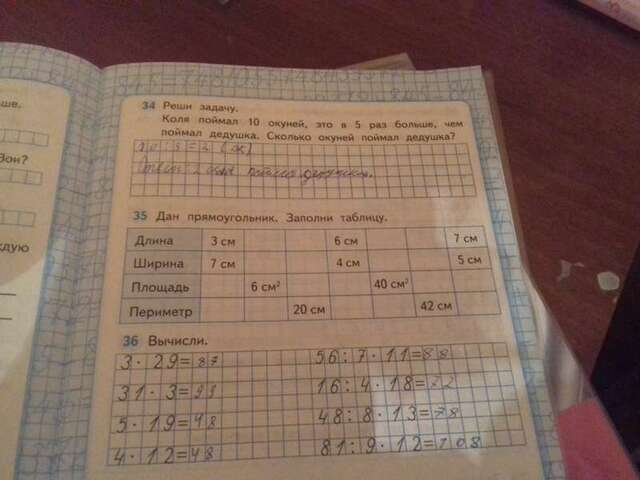 ше.
Зои?
ждую
34 Реши задачу.
Коля поймал 10 окуней, это в 5 раз больше, чем
поймал дедушка. Сколько окуней поймал дедушка?
5 = 2 (ок)
Ответ 2 поймал дедушка.
35 Дан прямоугольник. Заполни таблицу.
Длина 3 см 6 см 7 см
Ширина 7 см 4 см 5 см
Площадь 6 см² 40 см²
Периметр 20 см 42 см
36 Вычисли.
3 · 29 = 87 56 : 7 · 11 = 88
31 · 3 = 93 16 : 4 · 18 =
5 · 19 = 98 48 : 8 · 13 = 78
4 · 12 = 48 81 : 9 · 12 = 108